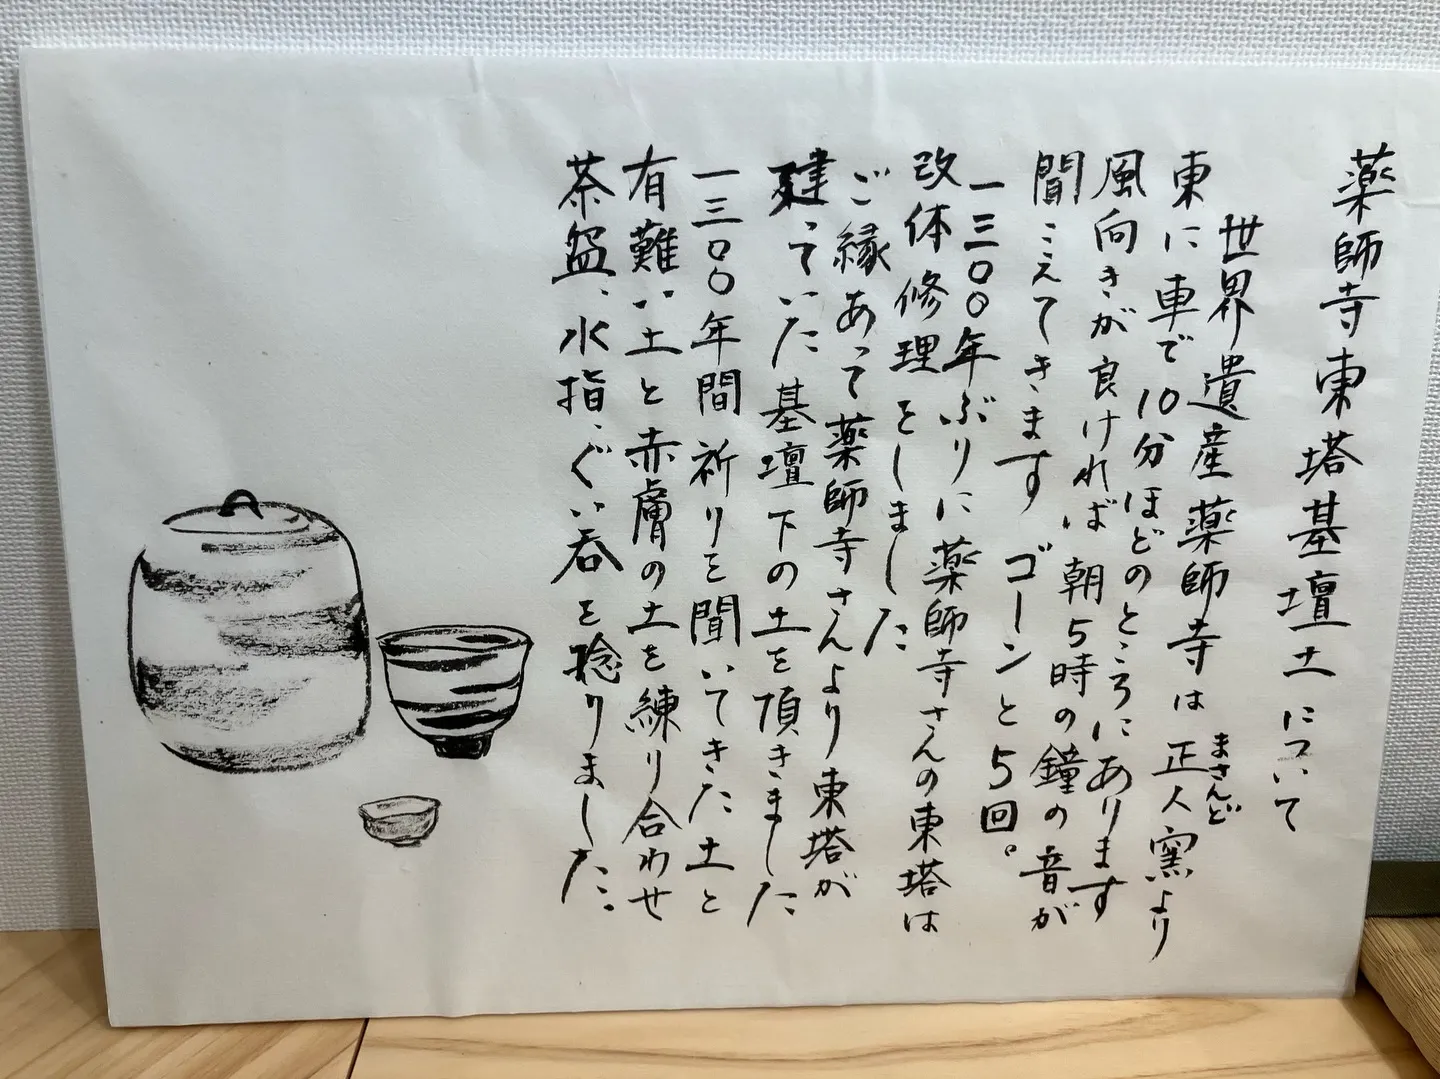 薬師寺東塔基壇土について
世界遺産薬師寺は正人窯より
まさんど
東に車で10分ほどのところにあります
風向きが良ければ朝5時の鐘の音が
聞こえてきます ゴーンと5回。
一三〇〇年ぶりに薬師寺さんの東塔は
改体修理をしました
ご縁あって薬師寺さんより東塔が
建っていた基壇下の土を頂きました
一三〇〇年間祈りを聞いてきた土と
有難い土と赤膚の土を練り合わせ
茶盌、水指、ぐい呑を捻りました。